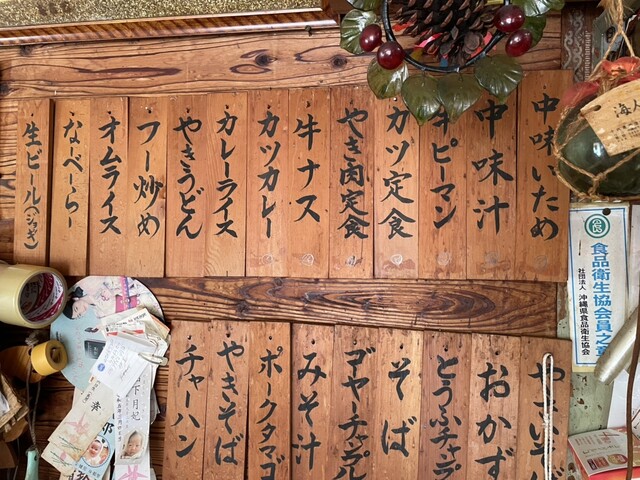 中味いため
中味汁
牛ピーマン
カツ定食
やき肉定食
牛ナス
カツカレー
カレーライス
やきうどん
フー炒め
オムライス
なべーらー
生ビール(ジョッキ)
おかず
とうふチャプ
そば
ゴーヤーチャプル
みそ汁
ポークタマゴ
やきそば
チャーハン
食品衛生協会員之章
社団法人 沖縄県食品衛生協会